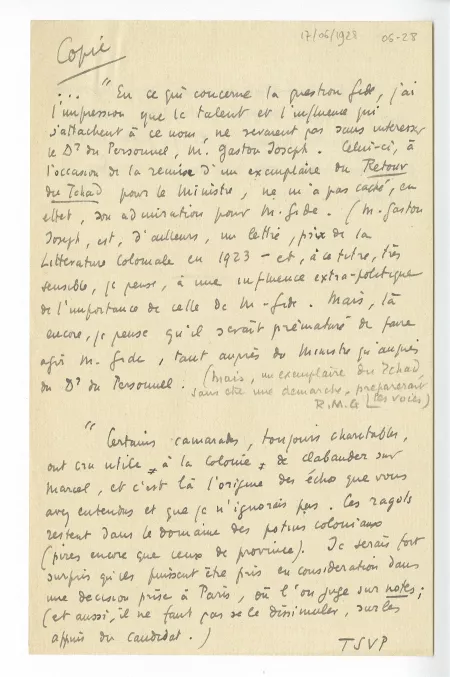 17/05/1928 05-28
Copie
... "En ce qui concerne la question Gide, j'ai
l'impression que le talent et l'influence qui
s'attachent à ce nom, ne seraient pas sans intéresser
le Dr du Personnel, M. Gaston Joseph. Celui-ci, à
l'occasion de la remise d'un exemplaire du Retour
du Tchad pour le Ministre, ne m'a pas caché, en
effet, son admiration pour M. Gide. (M. Gaston
Joseph, est, d'ailleurs, un lettré, prix de la
Littérature Coloniale en 1923 - et, à ce titre, très
sensible, je pense, à une influence extra-politique
de l'importance de celle de M. Gide. Mais, là
encore, je pense qu'il serait prématuré de faire
agir M. Gide, tant auprès du Ministre qu'auprès
du Dr du Personnel. (Mais, un exemplaire du Tchad
sans être une démarche, préparerait
les voies)
R.M.G
"Certains camarades, toujours charitables,
ont cru utile à la colonie de clabauder sur
Marcel, et c'est là l'origine des écho que vous
avez entendus et que je n'ignorais pas. Ces ragots
restent dans le domaine des potins coloniaux
(pires encore que ceux de province). Je serais fort
surpris qu'ils puissent être pris en considération dans
une décision prise à Paris, où l'on juge sur notes;
(et aussi, il ne faut pas se le dissimuler, sur les
appuis du candidat.)
TSVP